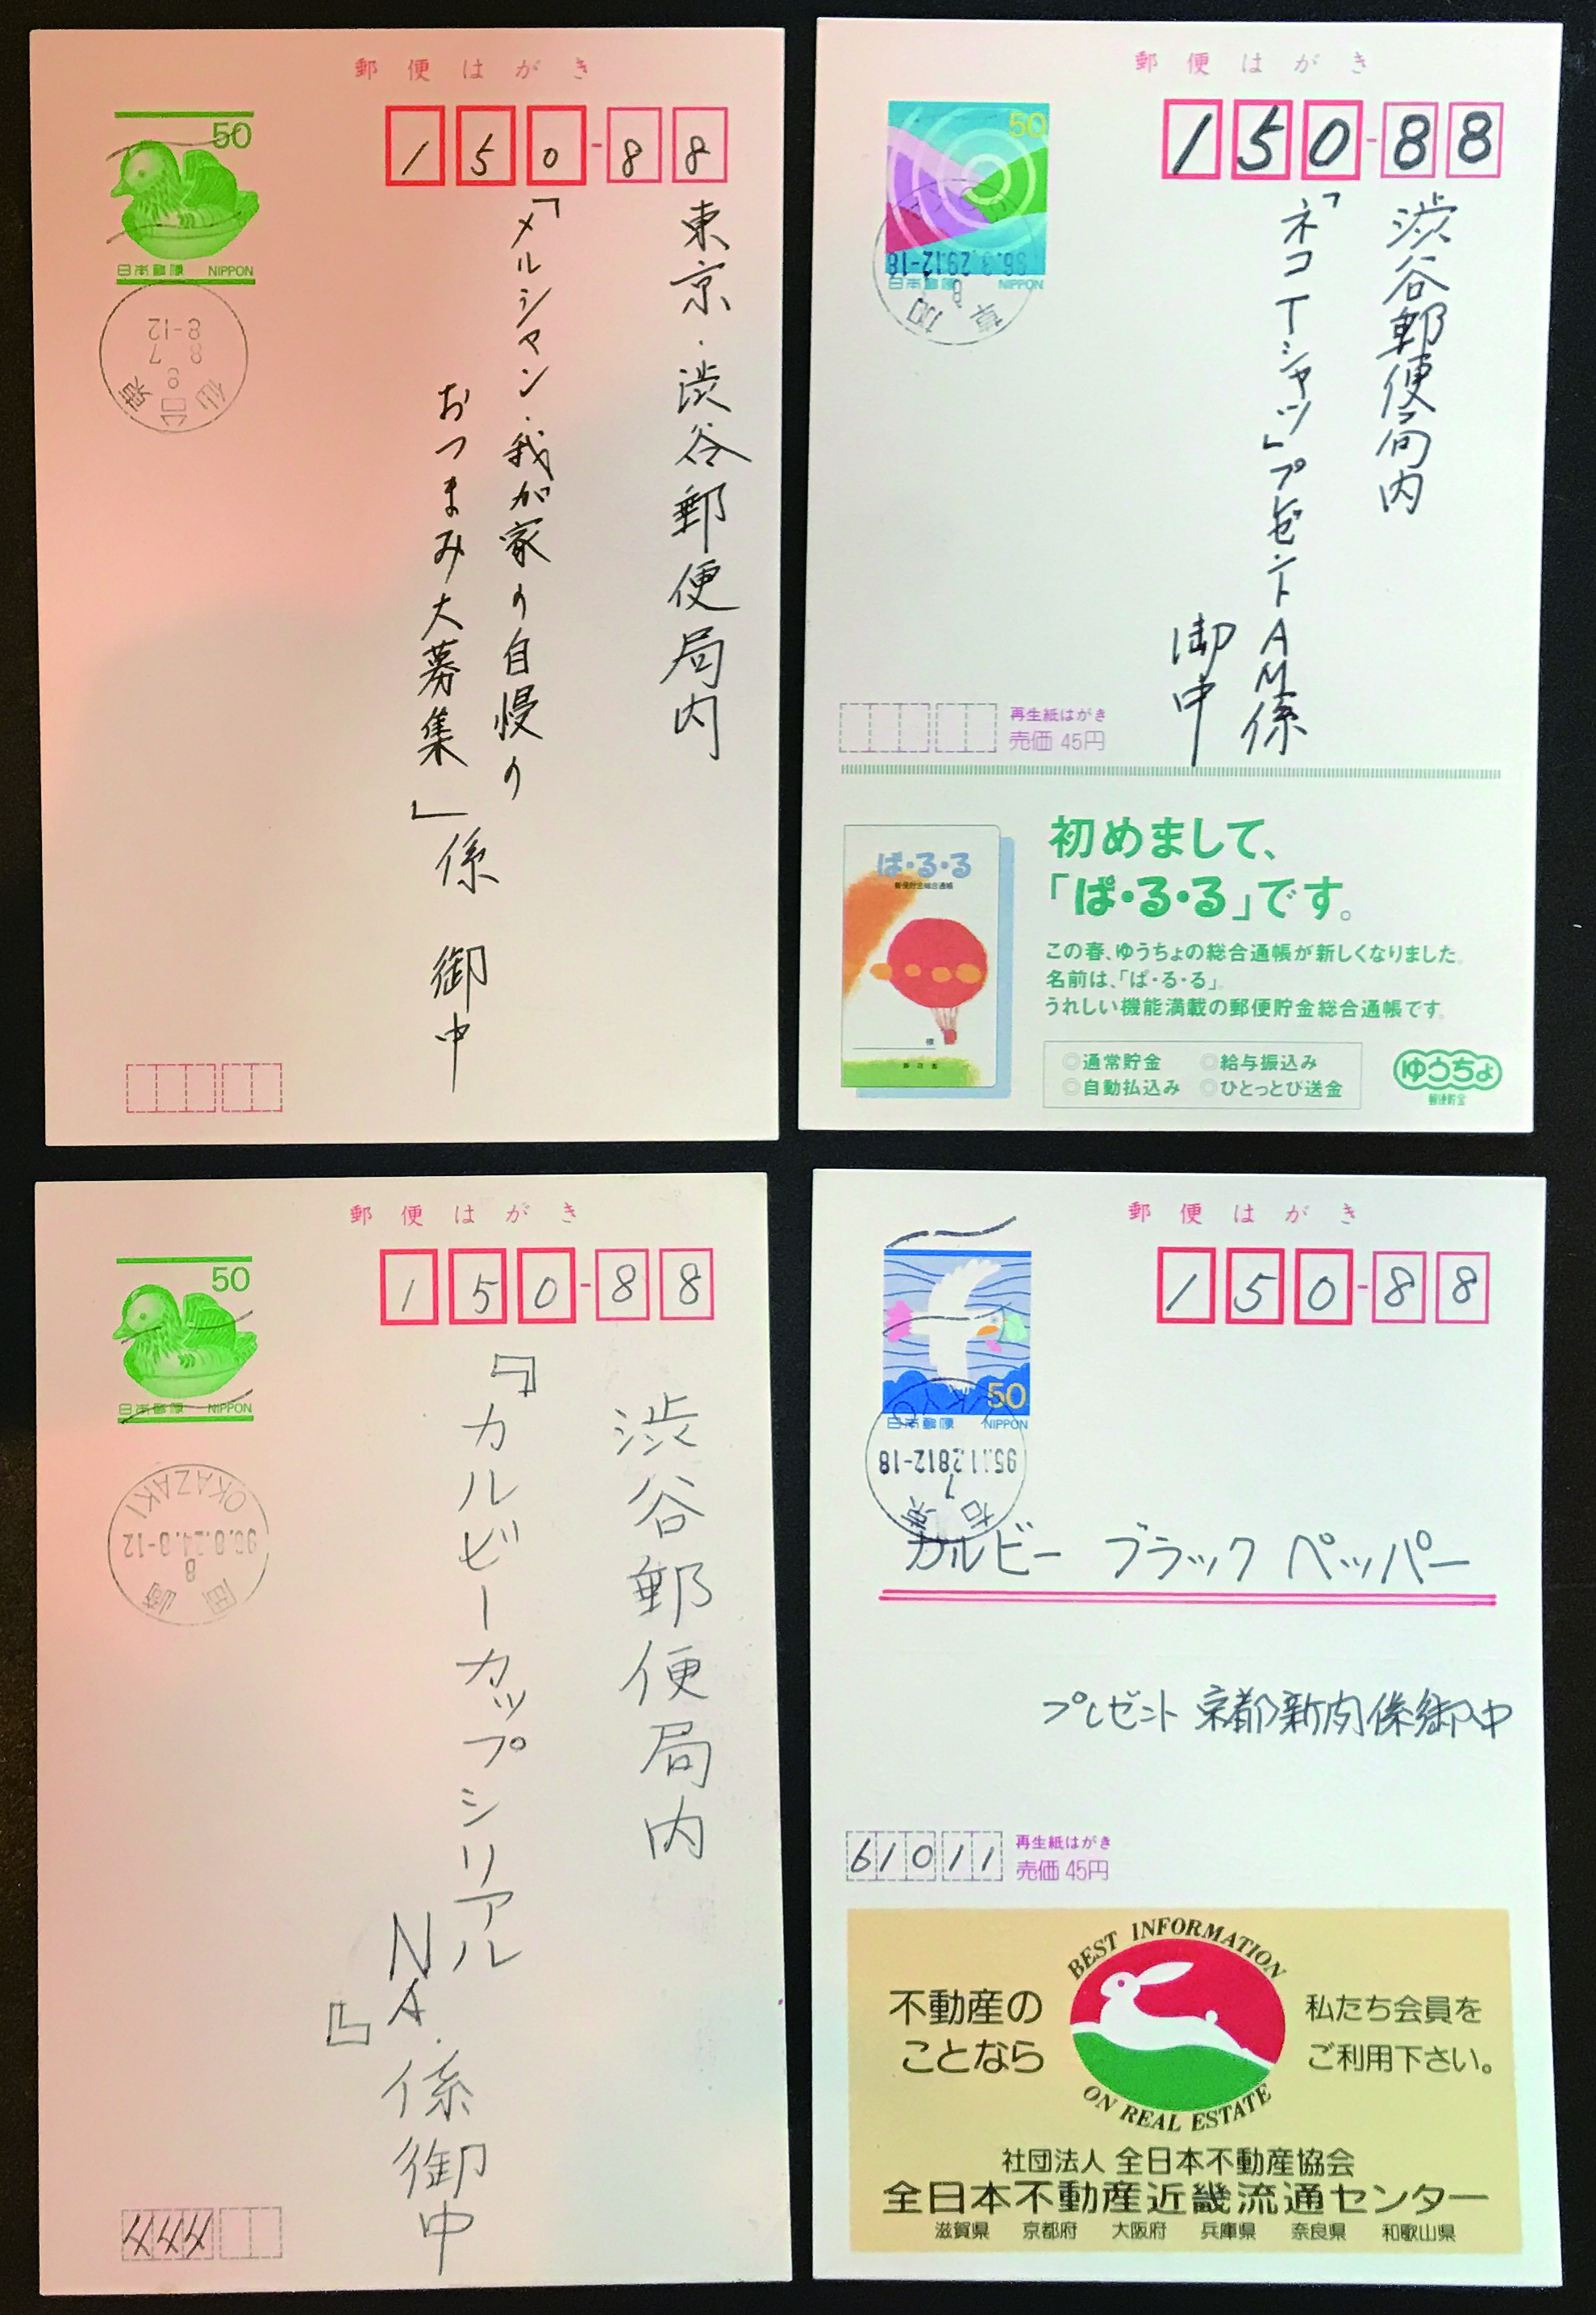 郵便はがき
50
日本郵便 NIPPON
150-88
東京・渋谷郵便局内
「メルシャン・我が家の自慢の
おつまみ大募集」係 御中
仙台東
8
8 7
8-12
郵便はがき
50
日本郵便 NIPPON
150-88
渋谷郵便局内
「ネコTシャツ」プレゼントAM係
御中
草加
8
96.3.29.12-18
再生紙はがき
売価 45円
初めまして、
「ぱ・る・る」です。
この春、ゆうちょの総合通帳が新しくなりました。
名前は、「ぱ・る・る」。
うれしい機能満載の郵便貯金総合通帳です。
◎通常貯金 ◎給与振込み
◎自動払込み ◎ひとっとび送金
ゆうちょ
郵便貯金
ぱ・る・る
郵便貯金総合通帳
様
郵政省
郵便はがき
50
日本郵便 NIPPON
150-88
渋谷郵便局内
『カルビーカップシリアル
NA.』係御中
岡崎
8
OKAZAKI
444
郵便はがき
50
日本郵便 NIPPON
150-88
7
95.11.28 12-18
カルビー ブラックペッパー
プレゼント 京都新聞係御中
61011
再生紙はがき
売価 45円
BEST INFORMATION
ON REAL ESTATE
不動産の
ことなら
私たち会員を
ご利用下さい。
社団法人 全日本不動産協会
全日本不動産近畿流通センター
滋賀県 京都府 大阪府 兵庫県 奈良県 和歌山県